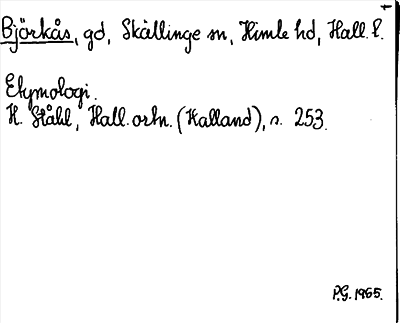 Björkås, gd, Skällinge sn, Himle hd, Hall. l.
Etymologi.
H. Ståhl, Hall. ortn. (Halland), s. 253.
P.G. 1965.